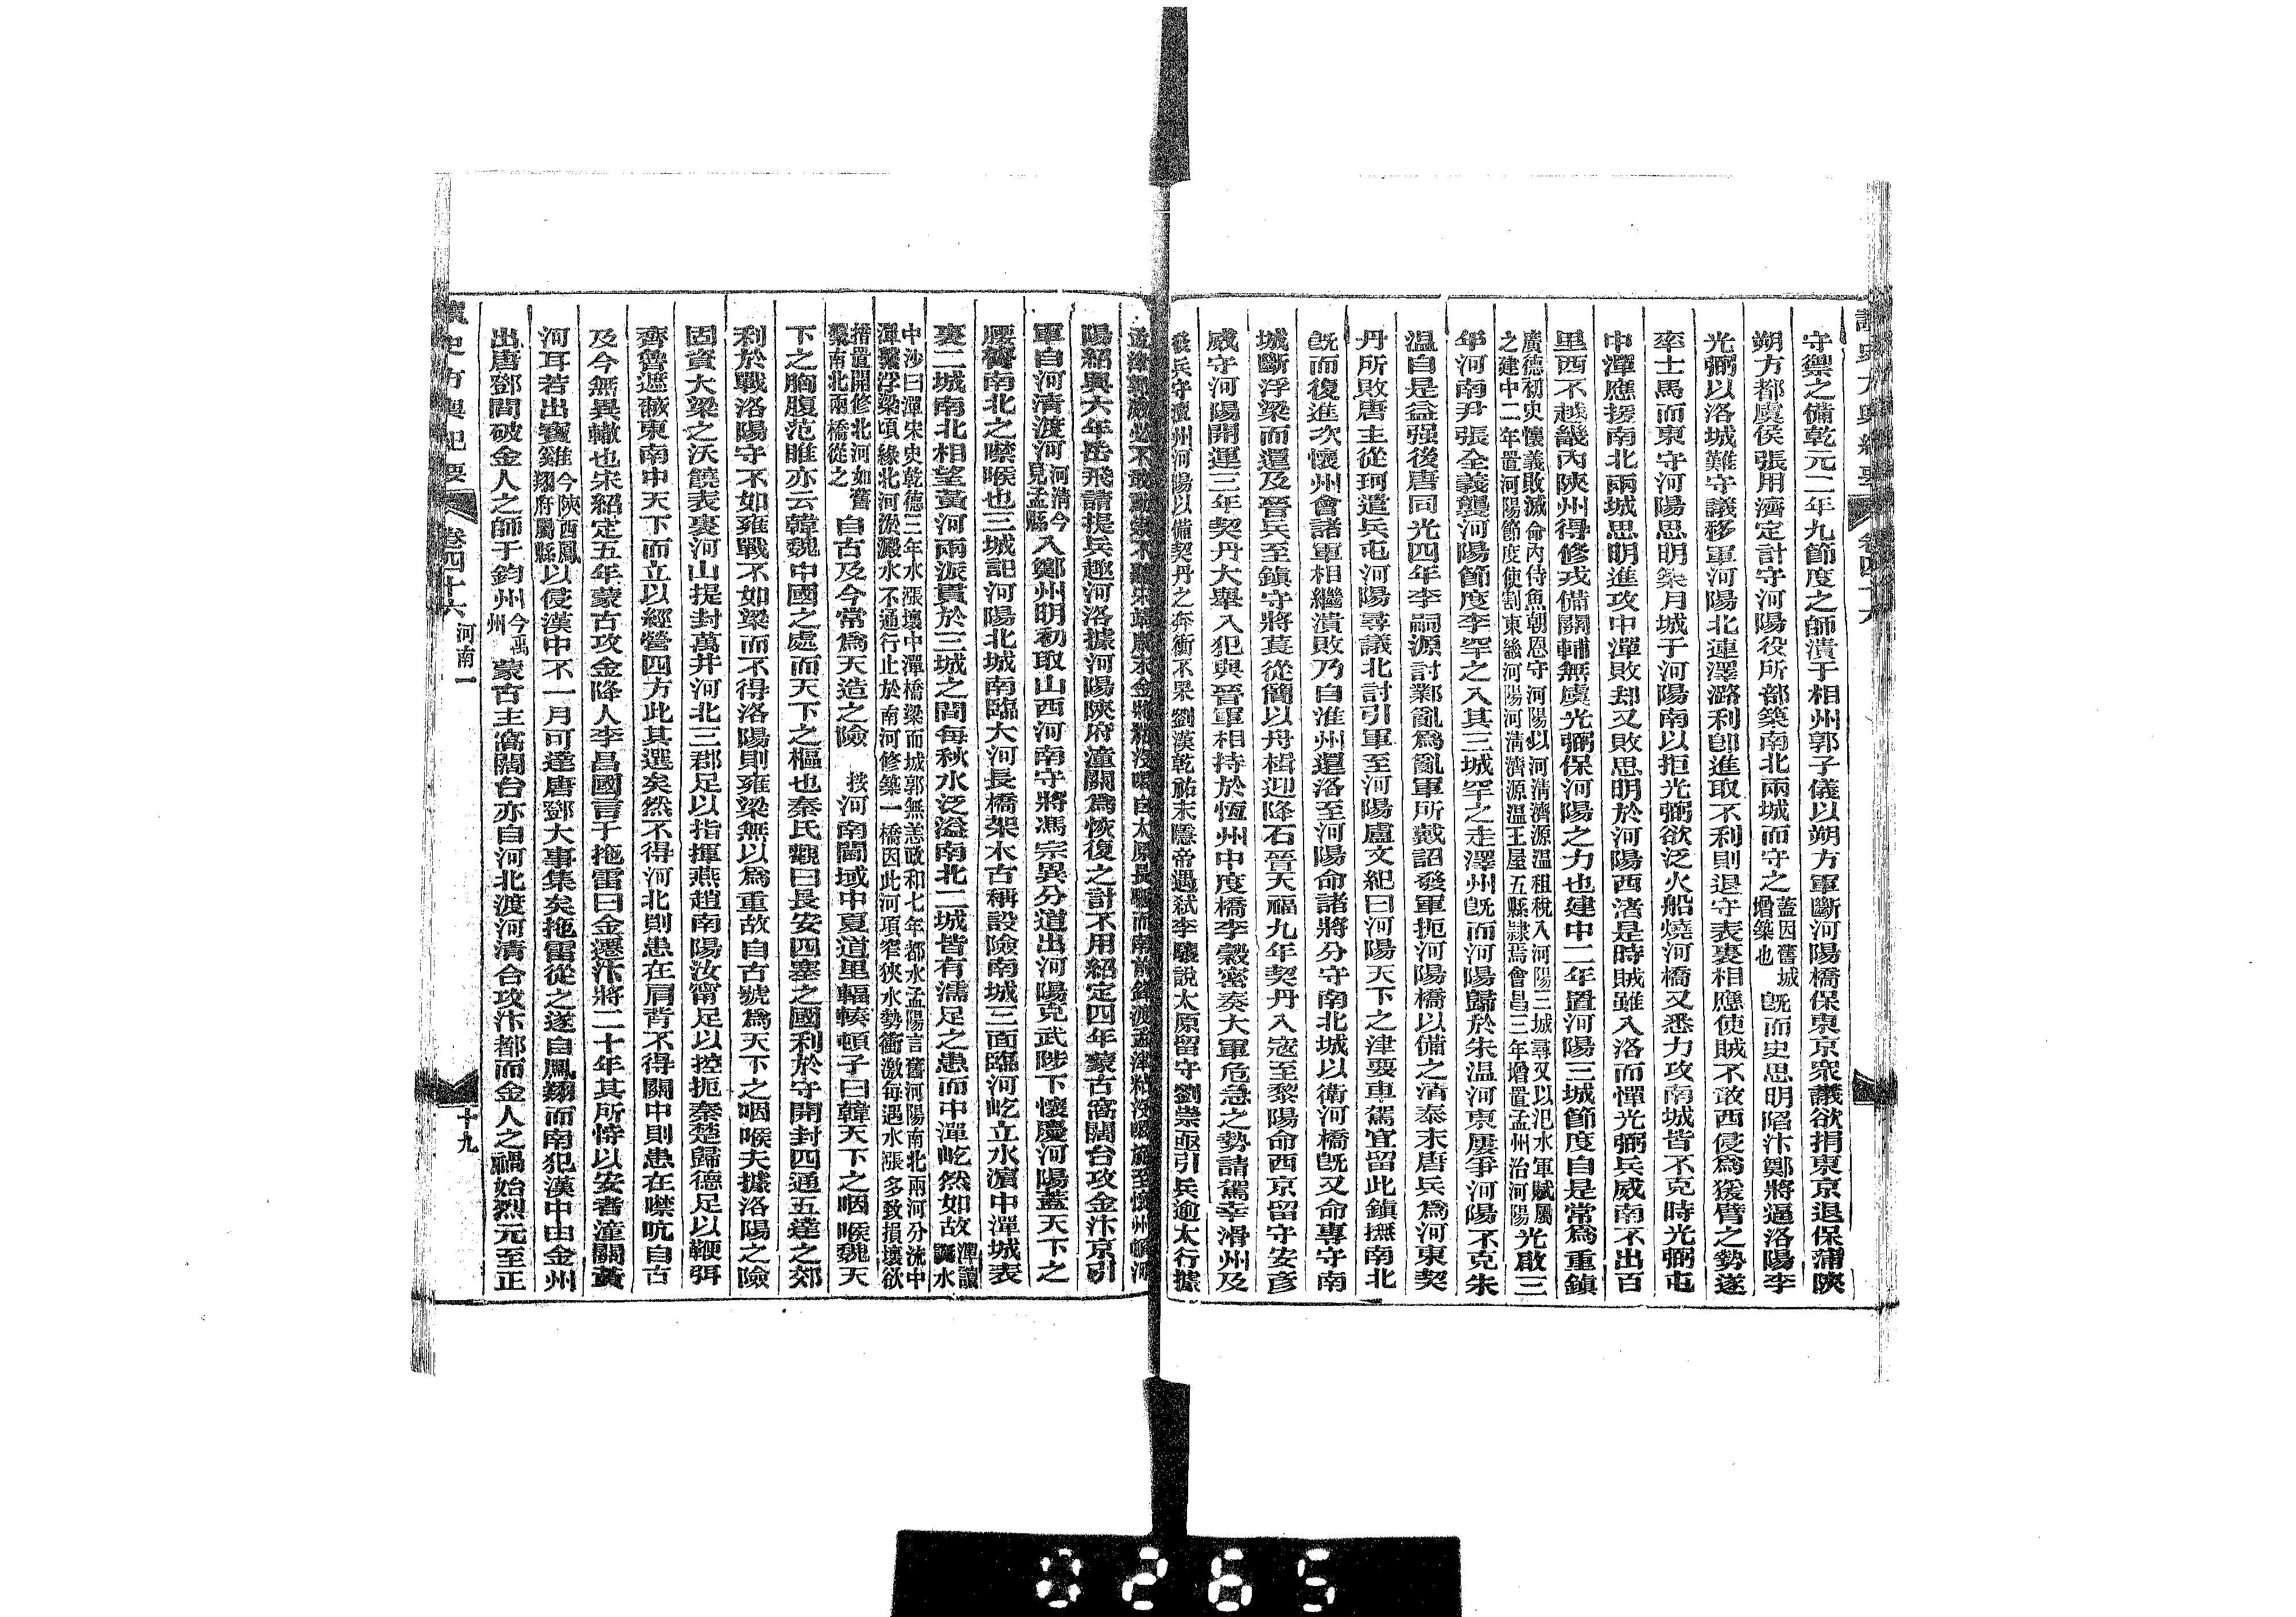 讀史方輿紀要 卷四十六
守禦之備乾元二年九節度之師潰于相州郭子儀以朔方軍斷河陽橋保東京衆議欲捐東京退保蒲陝
朔方都虞侯張用濟定計守河陽役所部築南北兩城而守之蓋因舊城增築也既而史思明陷汴鄭將逼洛陽李
光弼以洛城難守議移軍河陽北連澤潞利則進取不利則退守表裏相應使賊不敢西侵爲猨臂之勢遂
率士馬而東守河陽思明築月城于河陽南以拒光弼欲泛火船燒河橋又悉力攻南城皆不克時光弼屯
中潬應援南北兩城思明進攻中潬敗却又敗思明於河陽西渚是時賊雖入洛而憚光弼兵威南不出百
里西不越畿內陝州得修戎備關輔無虞光弼保河陽之力也建中二年置河陽三城節度自是常爲重鎮
廣德初史懷義敗滅命內侍魚朝恩守河陽以河清濟源溫租稅入河陽三城尋又以汜水軍賦屬
之建中二年置河陽節度使割東畿河陽河清濟源溫王屋五縣隷焉會昌三年增置孟州治河陽光啟三
年河南尹張全義襲河陽節度李罕之入其三城罕之走澤州既而河陽歸於朱温河東屢爭河陽不克朱
温自是益强後唐同光四年李嗣源討鄴亂爲亂軍所戴詔發軍扼河陽橋以備之清泰末唐兵爲河東契
丹所敗唐主從珂遣兵屯河陽尋議北討引軍至河陽盧文紀曰河陽天下之津要車駕宜留此鎮撫南北
既而復進次懷州會諸軍相繼潰敗乃自淮州還洛至河陽命諸將分守南北城以衛河橋既又命專守南
城斷浮梁而還及晉兵至鎮守將萇從簡以舟楫迎降石晉天福九年契丹入寇至黎陽命西京留守安彥
威守河陽開運三年契丹大舉入犯與晉軍相持於恆州中度橋李穀密奏大軍危急之勢請駕幸滑州及
發兵守澶州河陽以備契丹之奔衝不果劉漢乾祐末隱帝遇弒李驤說太原留守劉崇亟引兵逾太行據
孟津郭威必不敢動崇不聽宋靖康末金將粘沒喝自太原長驅而南前鋒渡孟津粘沒喝旋至懷州
陽紹興六年岳飛請提兵趣河洛據河陽陝府潼關爲恢復之計不用紹定四年蒙古窩闊台攻金汴京引
軍自河清渡河河清今見孟縣入鄭州明初取山西河南守將馮宗異分道出河陽克武陟下懷慶河陽蓋天下之
腰膂南北之噤喉也三城記河陽北城南臨大河長橋架水古稱設險南城三面臨河屹立水濵中潬城表
裏二城南北相望黃河兩派貫於三城之間每秋水泛溢南北二城皆有濡足之患而中潬屹然如故潬讀灘水
中沙曰潬宋史乾德三年水漲壞中潬橋梁而城郭無恙政和七年都水孟陽言舊河陽南北兩河分流中
潬繫浮梁頃緣北河淤澱水不通行止於南河修築一橋因此河項窄狹水勢衝激每遇水漲多致損壞欲
措置開修北河如舊繫南北兩橋從之自古及今常爲天造之險 按河南閫域中夏道里輻輳頓子曰韓天下之咽喉魏天
下之胸腹范雎亦云韓魏中國之處而天下之樞也秦氏觀曰長安四塞之國利於守開封四通五達之郊
利於戰洛陽守不如雍戰不如梁而不得洛陽則雍梁無以爲重故自古號爲天下之咽喉夫據洛陽之險
固資大梁之沃饒表裏河山提封萬井河北三郡足以指揮燕趙南陽汝甯足以控扼秦楚歸德足以鞭弭
齊魯遮蔽東南中天下而立以經營四方此其選矣然不得河北則患在肩背不得關中則患在噤吭自古
及今無異轍也宋紹定五年蒙古攻金降人李昌國言于拖雷曰金遷汴將二十年其所恃以安者潼關黃
河耳若出寶雞今陝西鳳翔府屬縣以侵漢中不一月可達唐鄧大事集矣拖雷從之遂自鳳翔而南犯漢中由金州
出唐鄧間破金人之師于鈞州今禹州蒙古主窩闊台亦自河北渡河清合攻汴都而金人之禍始烈元至正
讀史方輿紀要 卷四十六 河南一 十九
0265